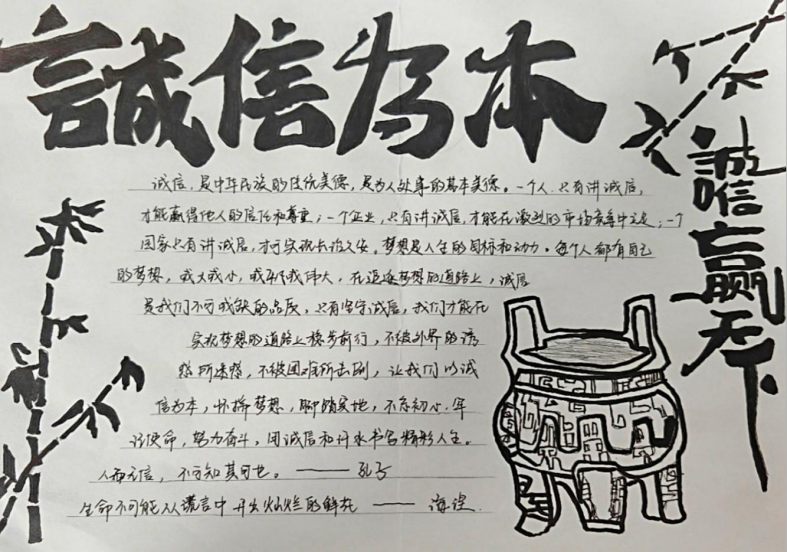 誠信为本
誠信赢天下
诚信，是中华民族的传统美德，是为人处事的基本美德。一个人，只有讲诚信，
才能赢得他人的信任和尊重；一个企业，只有讲诚信，才能在激烈的市场竞争中立足；一个
国家只有讲诚信，才可实现长治久安。梦想是人生的目标和动力。每个人都有自己
的梦想，或大或小，或平凡或伟大，在追逐梦想的道路上，诚信
是我们不可或缺的品质，只有坚守诚信，我们才能在
实现梦想的道路上稳步前行，不被外界的诱
惑所迷惑，不被困难所击倒，让我们以诚
信为本，怀揣梦想，脚踏实地，不忘初心，牢
记使命，努力奋斗，用诚信和汗水书写精彩人生。
人而无信，不可知其可也。——孔子
生命不可能从谎言中开出灿烂的鲜花——海涅